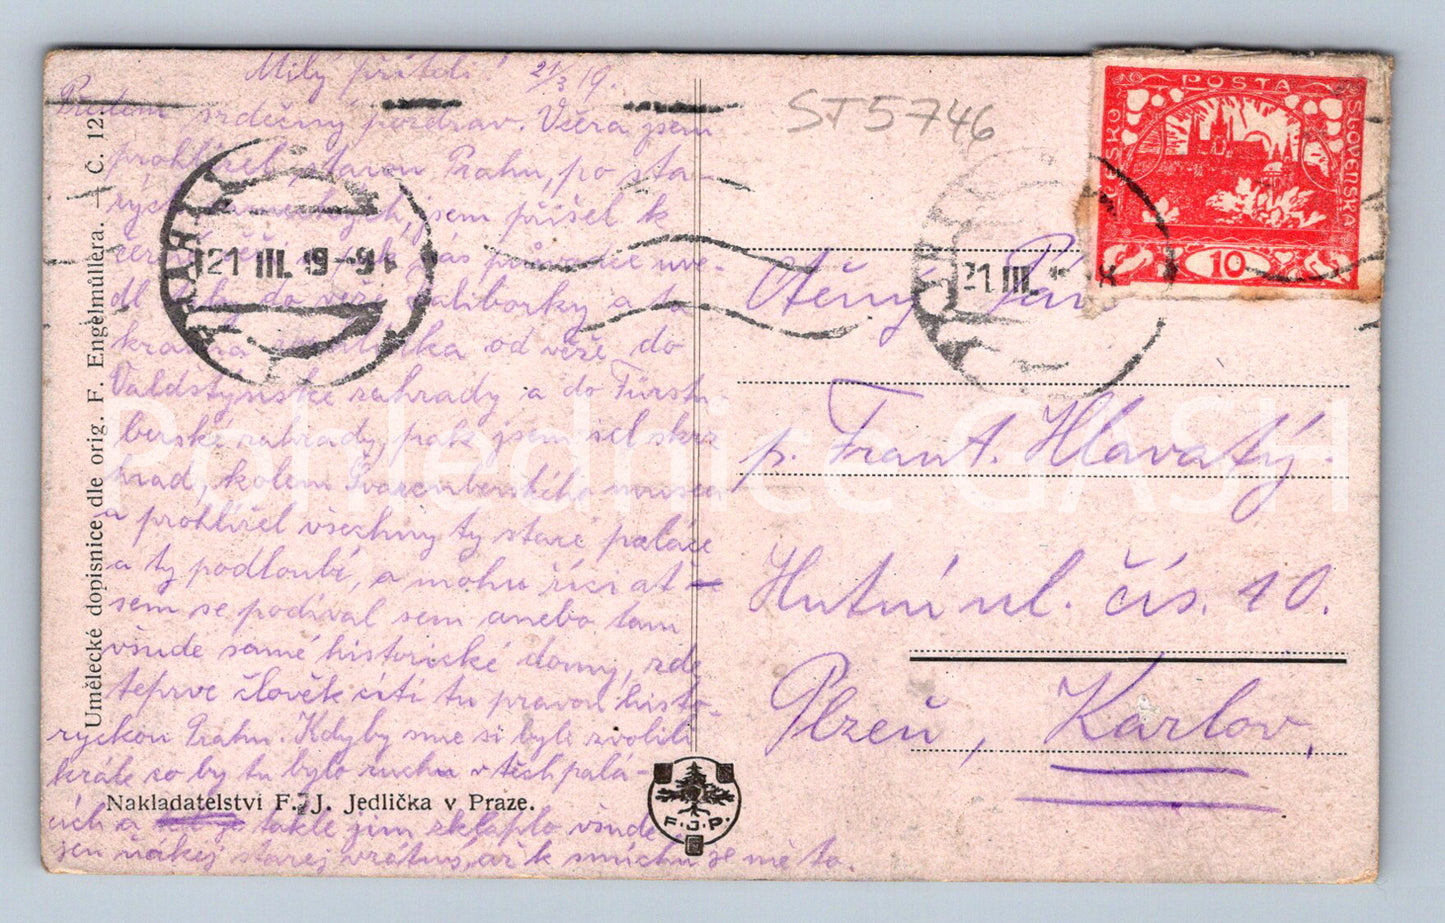 Milý příteli! 21/3 19.
Předem srdečný pozdrav. Včera jsem
prohlížel starou Prahu, po sta-
rých zámeckých, jsem přišel k
uve-
dl do věže Daliborky a ta
krásná od věže do
Valdštýnské zahrady a do Fürstn-
berské zahrady, pak jsem šel skrz
hrad, kolem Švarcenberského musea
a prohlížel všechny ty staré paláce
a ty podloubí, a mohu říci at
sem se podíval sem anebo tam
všude samé historické domy, zde
teprve člověk cítí tu pravou histo-
ryckou Prahu. Kdyby sme si byli zvolili
krále co by tu bylo ruchu v těch palá-
cích a takle jim zklaplo, všude
jen ňákej starej vrátný, až k smíchu se mě to.
Umělecké dopisnice dle orig. F. Engelmüllera. — Č. 12.
Nakladatelství F. J. Jedlička v Praze.
F.J.P.
ST5746
POSTA
ČESKO SLOVENSKA
10
10
21 III. 19-9
21 III.
Ctěný Pán
p. Frant. Hlavatý.
Hutní ul. čís. 10.
Plzeň, Karlov.
Pohlednice GASH